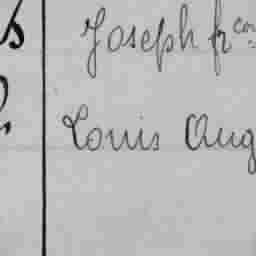 Joseph frçon
Louis Aug